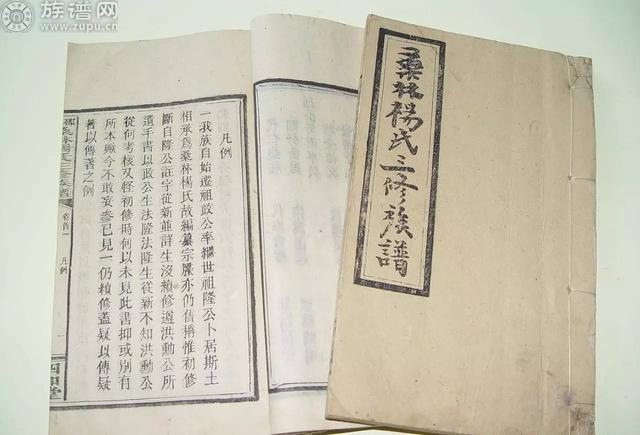 族谱网
www.zupu.cn
桑林楊氏三修族譜
凡例
一我族自始遷祖政公率繼世祖隆公卜居斯土
相承爲桑林楊氏故編纂宗牒亦仍舊稱惟初修
斷自隆公註字從新並詳生沒續修遵洪勳公所
遺手書以政公生法隆法隆生從新不知洪勳公
從何考核又怪初修時何以未見此書抑或別有
所本職今不敢妄參己見一仍續修蓋疑以傳疑
著以傳著之例
楊氏三修族譜
卷首一
凡例
一
四知堂